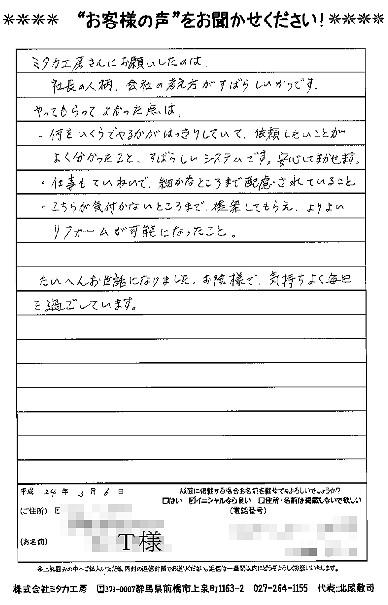 ＊＊＊＊ “お客様の声”をお聞かせください！＊＊＊＊
ミタカ工房さんにお願いしたのは
社長の人柄、会社の考え方がすばらしいからです。
やってもらってよかった点は
・何をいくらでやるかがはっきりしていて、依頼したいことが
よく分かったこと、すばらしいシステムです。安心してまかせられ
・仕事もていねいで、細かなところまで配慮されていること
・こちらが気付かないところまで、提案してもらえ、よりよい
リフォームが可能になったこと。
たいへんお世話になりました。お陰様で、気持ちよく毎日
を過ごしています。
平成 24年 3月 6日
紙面に掲載する場合お名前を載せてもよろしいでしょうか？
□はい ☑イニシャルなら良い □住所・名前は掲載しないで欲しい
(ご住所)
(電話番号)
(お名前)
T様
株式会社ミタカ工房 〒371-0007群馬県前橋市上泉町1163-2 027-264-1155 代表:北尾敷司